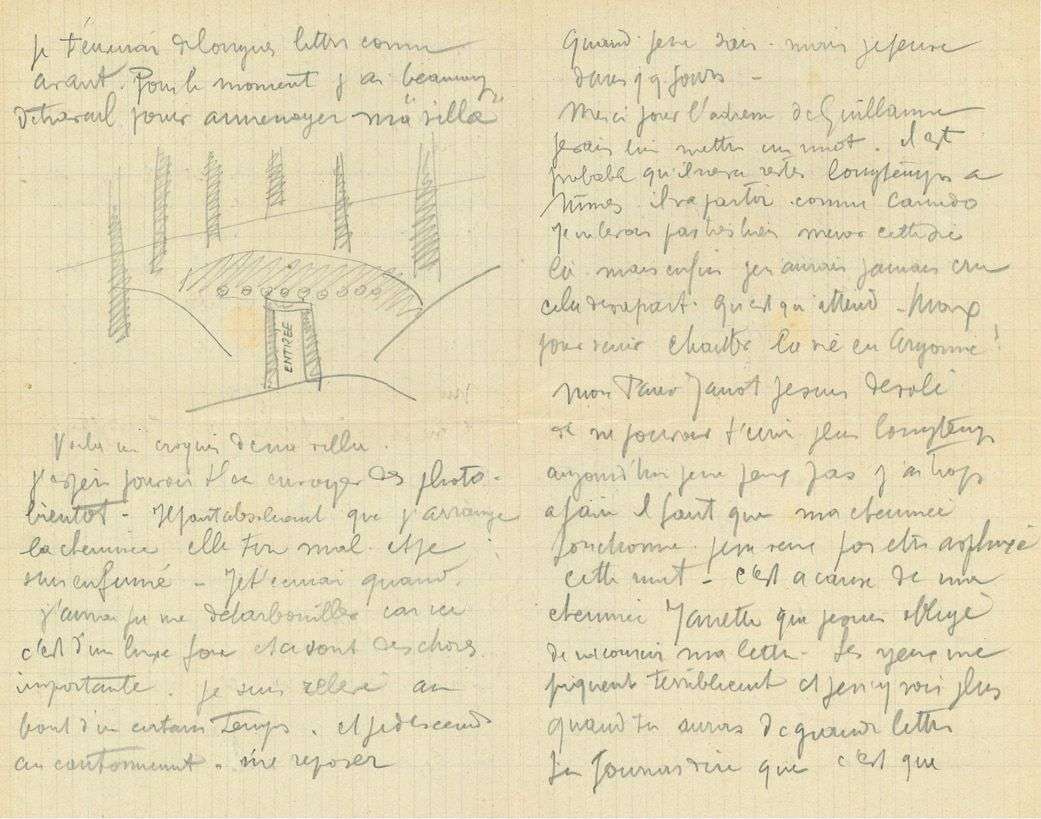 je t'enverrai de longues lettres comme
avant. Pour le moment j'ai beaucoup
de travail pour amménager ma "villa"
ENTREE
Voila un croquis de ma villa.
j'espère pouvoir t'en envoyer des photo-
bientot - Il faut absolument que j'arrange
la cheminée elle tire mal et je
suis enfumé - Je t'ecrirai quand
j'aurai pu me débarbouiller car ici
c'est d'un luxe fou et ce sont des choses
importante. je suis relevé au
bout d'un certain Temps. et je descend
au cantonnement. me reposer
Quand je ne sais. mais je pense
dans qq jours -
Merci pour l'adresse de Guillaume
je vais lui mettre un mot. il est
probable qu'il ne va rester longtemps a
Nimes il va partir comme Canudo
je ne le vois pas très bien mener cette vie
là mais enfin je n'aurais jamais cru
cela de sa part. qu'est qu'attend Max
pour venir chanter la vie en Argonne!
Mon Janot je suis desolé
de ne pouvoir t'ecrire plus longtemps
aujourd'hui je ne peux pas j'ai trop
a faire il faut que ma cheminée
fonctionne. je ne veux pas etre asphyxié
cette nuit - c'est a cause de ma
cheminée que je suis obligé
de raccourcir ma lettre. Les yeux me
piquent terriblement et je n'y vois plus
quand tu auras de grandes lettres
tu pourras dire que c'est que